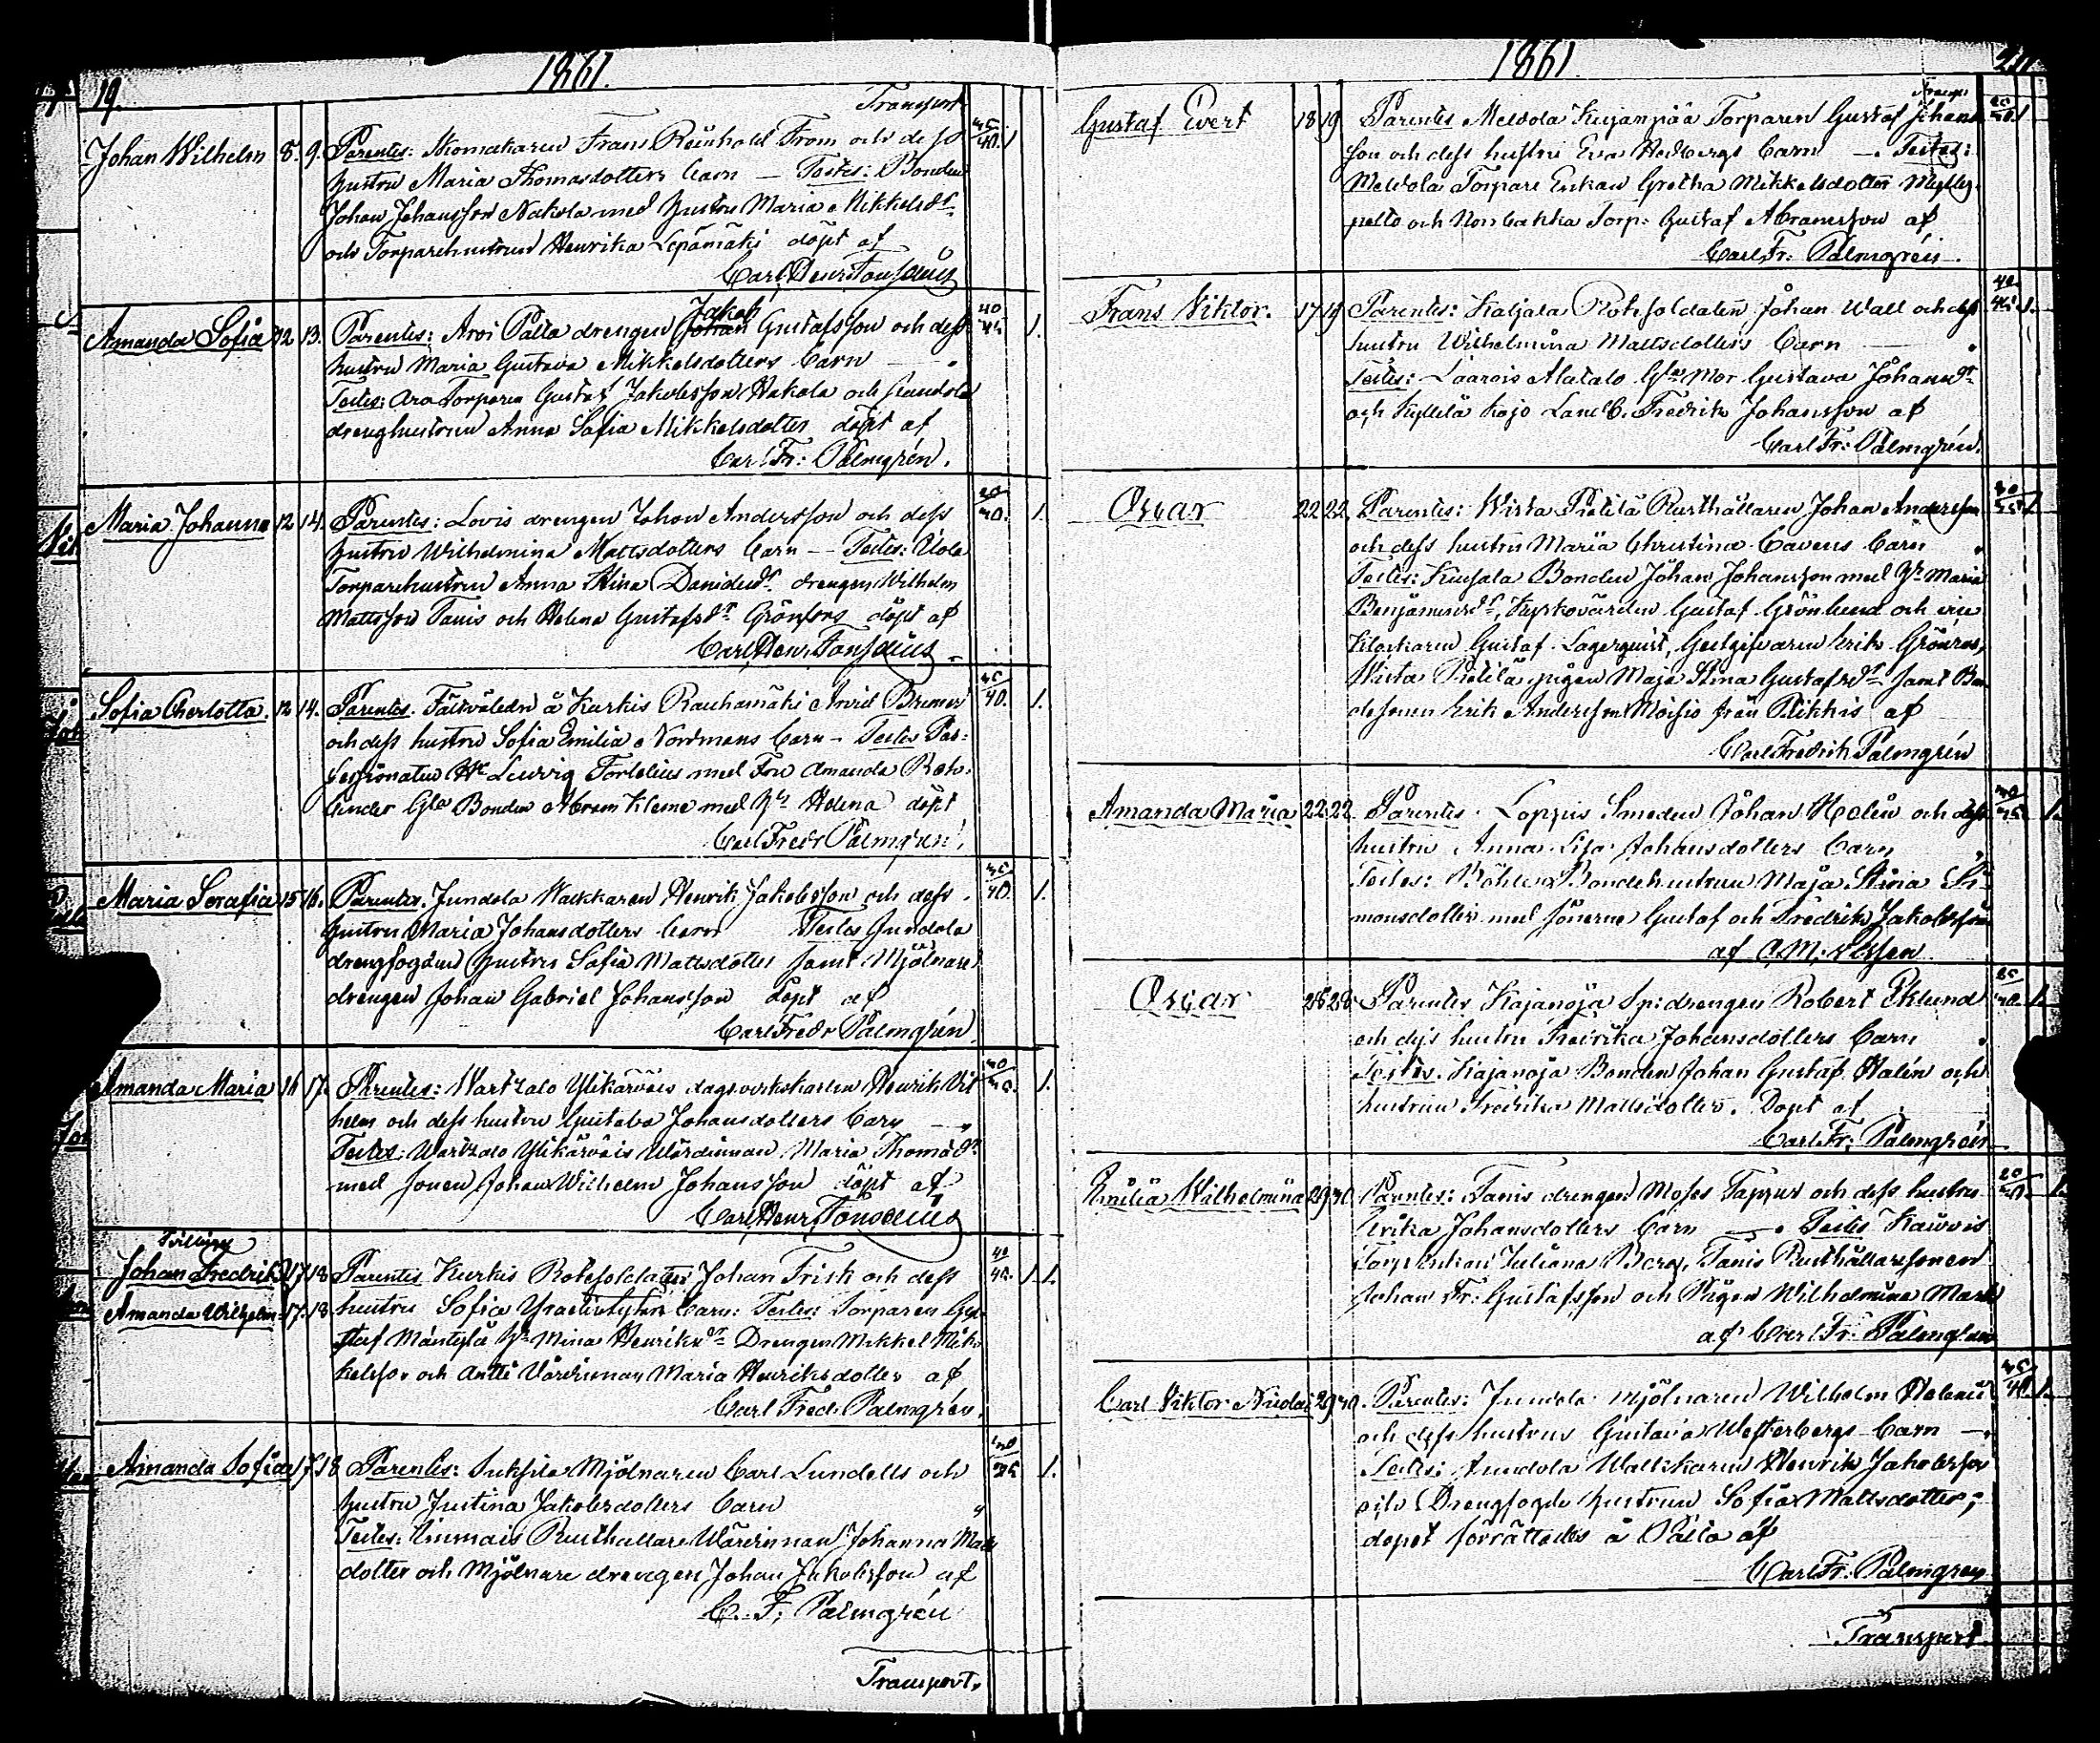 19.
1861.
Transport
Johan Wilhelm 8. 9. Parentes: Skomakaren Frans Reinhold From och dess 35/40. 1
hustru Maria Thomasdotters barn — Testes: Bonden
Johan Johansson Nakola med hustru Maria Mikkelsdr
och Torparehustrun Henrika Lepämäki döpt af
Carl Henr Fonselius
Amanda Sofia 12 13. Parentes: Arvi Palta drengen Jakob Johan Gustafsson och dess 40/45 1.
hustru Maria Gustava Mikkelsdotters barn —
Testes: Ara Torparen Gustaf Jakobsson Hakola och Jundola
drenghustrun Anna Sofia Mikkelsdotter döpt af
Carl Fr: Palmgrén.
Maria Johanna 12 14. Parentes: Lovis drengen Johan Andersson och dess 1.
hustru Wilhelmina Mattsdotters barn — Testes:
Torparehustrun Anna Stina Danielsdr drengen Wilhelm
Mattsson Tanis och Helena Gustafsdr Grönfors döpt af
Carl Henr. Fonselius
Sofia Cherlotta. 12 14. Parentes. å Kurkis Rauhamäki Arvid Bremer 35/40. 1.
och dess hustru Sofia Emilia Nordmans barn — Testes
Ludvig Fortelius med Fru Amanda Reh-
binder Gla Bonden Abram Kleme med Hu Helena döpt
Carl Fredr Palmgrén.
Maria Serafia 15 16. Parentes. Jundola Wackkaren Henrik Jakobsson och dess 35/40. 1.
hustru Maria Johansdotters barn Testes Jundola
drengfogdens hustru Sofia Mattsdotter samt Mjölnare
drengen Johan Gabriel Johansson döpt af
Carl Fredr Palmgrén
Amanda Maria 16 17. Parentes: Wartsalo Ylikärväis dagsverkskarlen Henrik Wil 1.
helm och dess hustru Gustava Johansdotters barn —
Testes: Wartsalo Ylikärväis Wärdinnan Maria Thomasdr
med sonen Johan Wilhelm Johansson döpt af
Carl Henr. Fonselius
Tvilling
Johan Fredrik 17 18 Parentes Kurkis Rotesoldaten Johan Frisk och dess 40/45. 1 1.
Amanda Wilhelm. 17. 18. hustru Sofia barn: Testes: Torparen Gu-
staf Mäntylä Hu Mina Henriksdr Drengen Mikkel Mik-
kelsson och Antti Wärdinnan Maria Henriksdotter af
Carl Fredr Palmgrén.
Amanda Sofia 17 18 Parentes: Suksila Mjölnaren Carl Lundells och 1.
hustru Justina Jakobsdotters barn
Testes: Rusthållare Wärdinnan Johanna Mats
dotter och Mjölnare drengen Johan Jakobsson af
C. F. Palmgrén
Transport.
1861
Transp.
Gustaf Evert 18 19 Parentes Mewola Kujanpää Torparen Gustaf Johans 1
son och dess hustru Eva Hedbergs barn —. Testes:
Mewola Torpare Enkan Gretha Mikkelsdotter Mylly-
pelto och Torp: Gustaf Abramsson af
Carl Fr: Palmgrén.
Frans Viktor. 17 19 Parentes: Kaljala Rotesoldaten Johan Wall och dess 40/45. 1.
hustru Wilhelmina Mattsdotters barn —
Testes: Laarois Alatalo Gla Mor Gustava Johansdr
och Kyllelä Kojo Landb. Fredrik Johansson af
Carl Fr: Palmgrén.
Oscar 22 22. Parentes: Wista Pietilä Rusthållaren Johan Andersson 1
och dess hustru Maria Christina Cavens barn
Testes: Bonden Johan Johansson med Hu Maria
Benjaminsdr, Kyrkovärden Gustaf Grönlund och
Klockaren Gustaf Lagerquist, Gestgifvaren Erik Grönros,
Wista Pietilä pigan Maja Stina Gustafsdr samt Bon
desonen Erik Andersson Moisio från Pikkis af
Carl Fredrik Palmgrén
Amanda Maria 22 22 Parentes. Loppis Smeden Johan Helén och dess 1.
hustru Anna Lisa Johansdotters barn
Testes: Böhle Bondehustrun Maja Stina Si-
monsdotter med sönerne Gustaf och Fredrik Jakobsson
af
Oscar 28 28 Parentes Kajanoja Sp: drengen Robert Eklund 1.
och dess hustru Fredrika Johansdotters barn
Testes: Kajanoja Bonden Johan Gustaf Halén och
hustrun Fredrika Mattsdotter. Döpt af
Carl Fr: Palmgrén
Emilia Wilhelmina 29 30. Parentes: Tanis drengen Moses Tappus och dess hustru 1.
Ulrika Johansdotters barn —. Testes
Torp Enkan Juliana Berg, Tanis Rusthållaresonen
Johan Fr: Gustafsson och Pigan Wilhelmina Matts
af Carl Fr. Palmgrén
Carl Viktor Nicolai 29 30. Parentes: Jundola mjölnaren Wilhelm Helenii 35/40 1.
och dess hustrus Gustava Westerbergs barn —
Testes: Jundola Wallskaren Henrik Jakobsson
och Drengfogde hustrun Sofia Mattsdotter;
dopet förrättades å Palta af
Carl Fr: Palmgren
Transport